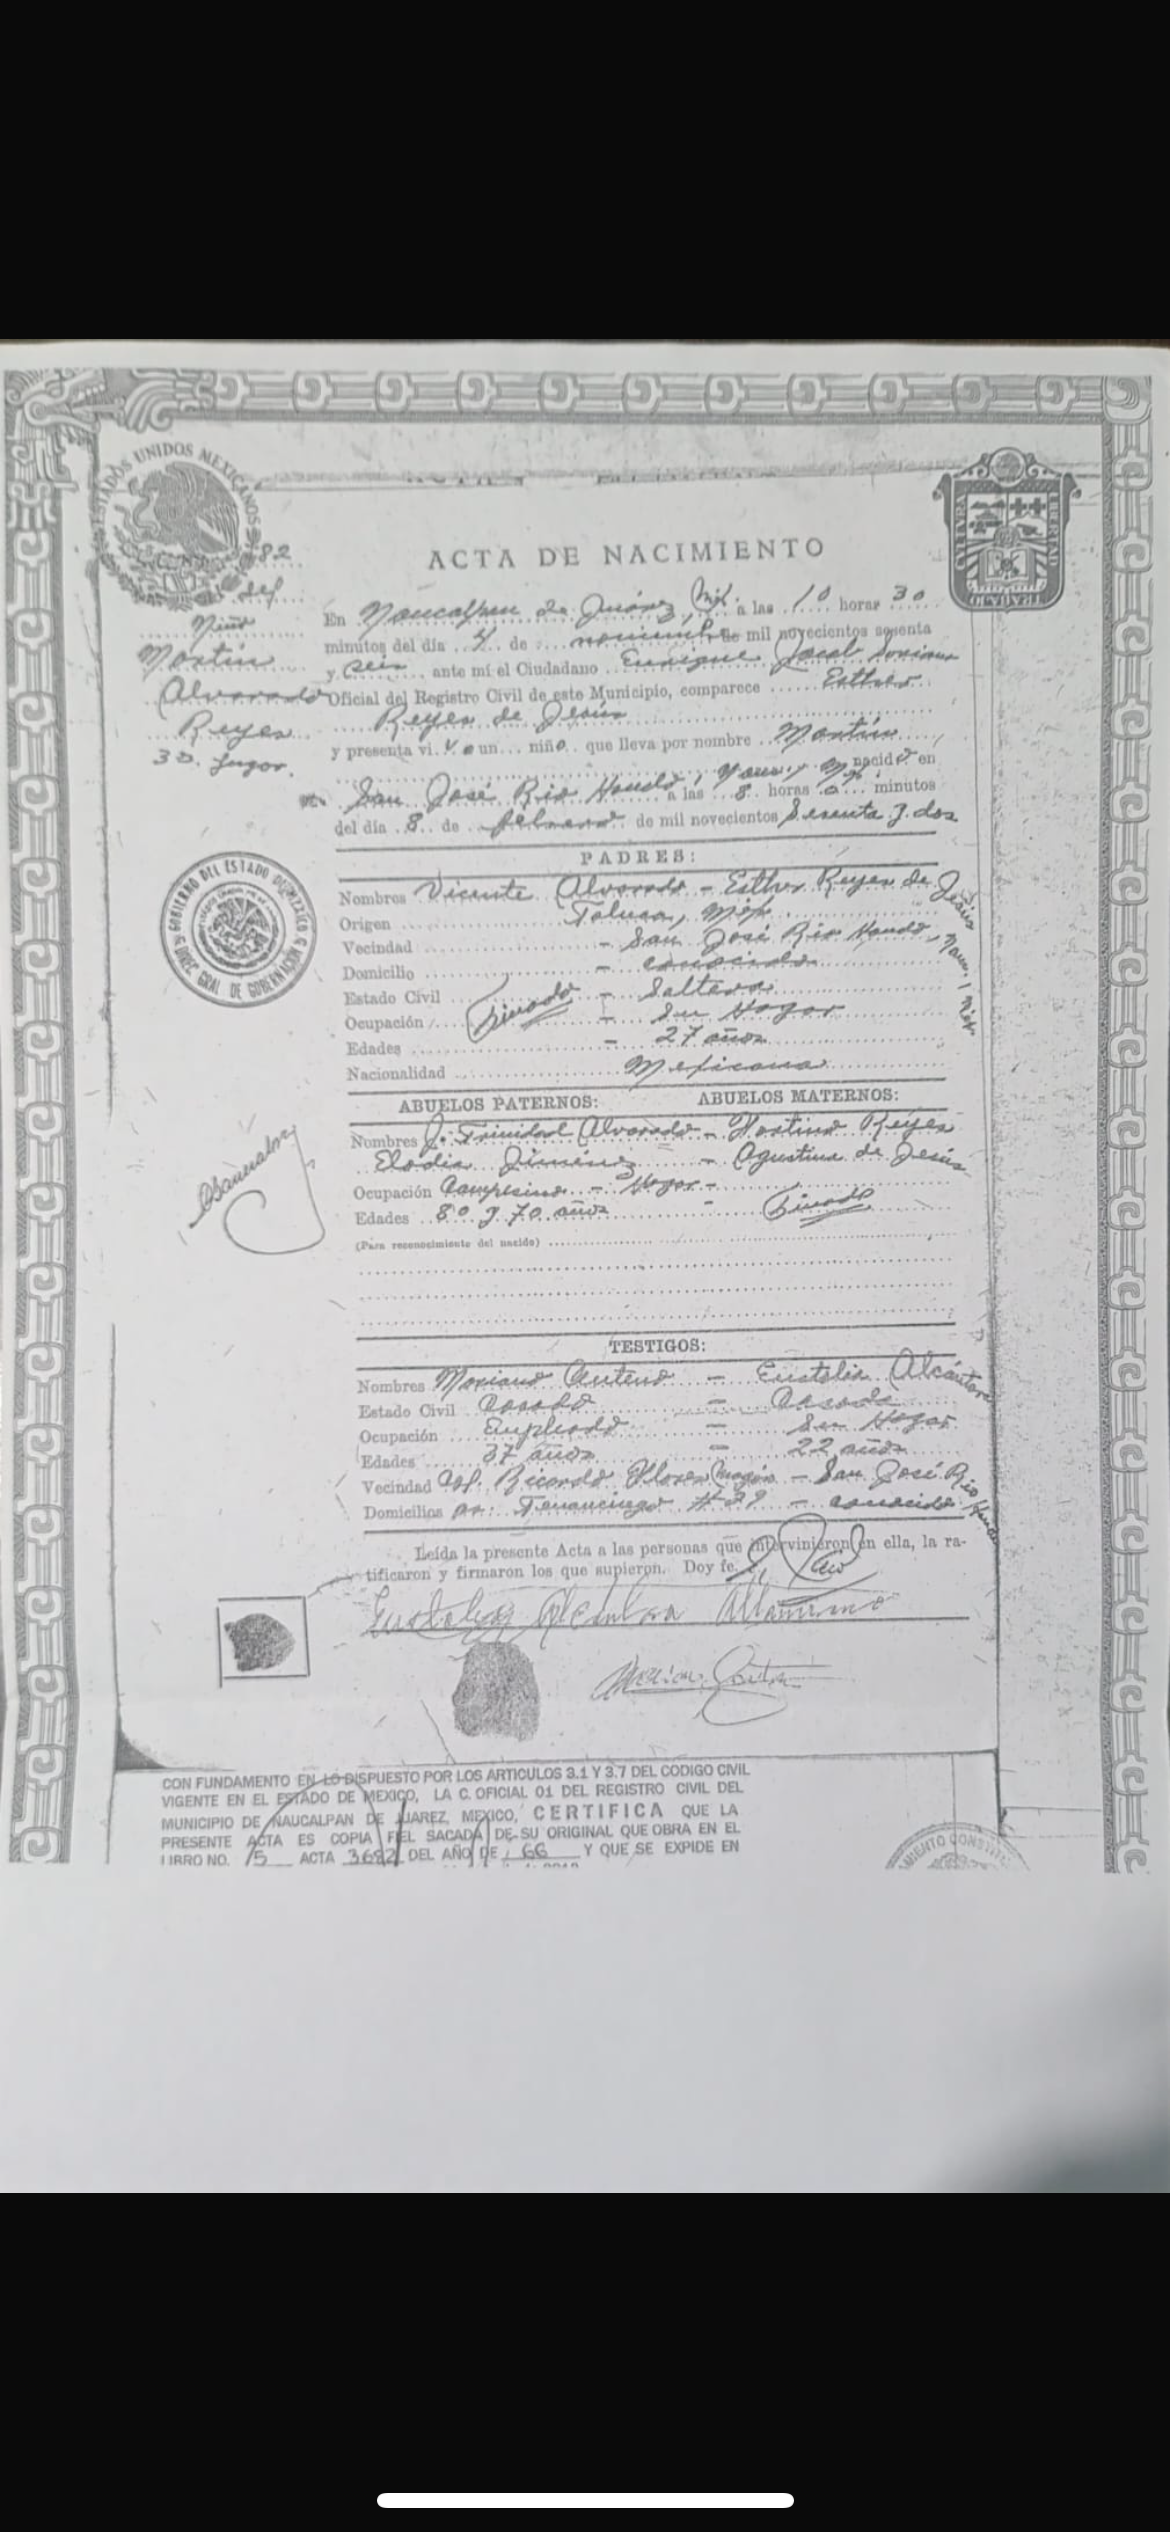 ESTADOS UNIDOS MEXICANOS
CULTURA LIBERTAD TRABAJO
82
ACTA DE NACIMIENTO
del
Niño
Martín
Alvarado
Reyes
3o. Lugar.
En Naucalpan de Juárez, Méx. a las 10 horas 30
minutos del día 4 de noviembre de mil novecientos sesenta
y seis ante mí el Ciudadano Enrique Jacob Soriano
Oficial del Registro Civil de este Municipio, comparece Esther
Reyes de Jesús
y presenta vivo a un niño que lleva por nombre Martín
nacido en
San José Rio Hondo, Nau., Méx. a las 8 horas 0 minutos
del día 8 de febrero de mil novecientos sesenta y dos
PADRES:
Nombres Vicente Alvarado - Esther Reyes de Jesús
Origen Toluca, Méx.
Vecindad - San José Rio Hondo, Nau., Méx.
Domicilio - conocido
Estado Civil Finado - Soltera
Ocupación - Su Hogar
Edades - 27 años
Nacionalidad Mexicana
ABUELOS PATERNOS: ABUELOS MATERNOS:
Nombres J. Trinidad Alvarado - Martino Reyes
Elodia Jiménez - Agustina de Jesús
Ocupación Campesino - Hogar -
Edades 80 y 70 años - Finados
(Para reconocimiento del nacido)
GOBIERNO DEL ESTADO DE MEXICO
DIREC. GRAL. DE GOBERNACION
TESTIGOS:
Nombres Mariano Antero - Eustolia Alcántara
Estado Civil Casado - Casada
Ocupación Empleado - Su Hogar
Edades 37 años - 22 años
Vecindad Col. Ricardo Flores Magón - San José Rio Hondo
Domicilios Tenancingo #29 - conocido
Leída la presente Acta a las personas que intervinieron en ella, la ra-
tificaron y firmaron los que supieron. Doy fe.
CON FUNDAMENTO EN LO DISPUESTO POR LOS ARTICULOS 3.1 Y 3.7 DEL CODIGO CIVIL
VIGENTE EN EL ESTADO DE MEXICO, LA C. OFICIAL 01 DEL REGISTRO CIVIL DEL
MUNICIPIO DE NAUCALPAN DE JUAREZ, MEXICO, CERTIFICA QUE LA
PRESENTE ACTA ES COPIA FIEL SACADA DE SU ORIGINAL QUE OBRA EN EL
LIBRO NO. 15 ACTA 3682 DEL AÑO DE 66 Y QUE SE EXPIDE EN